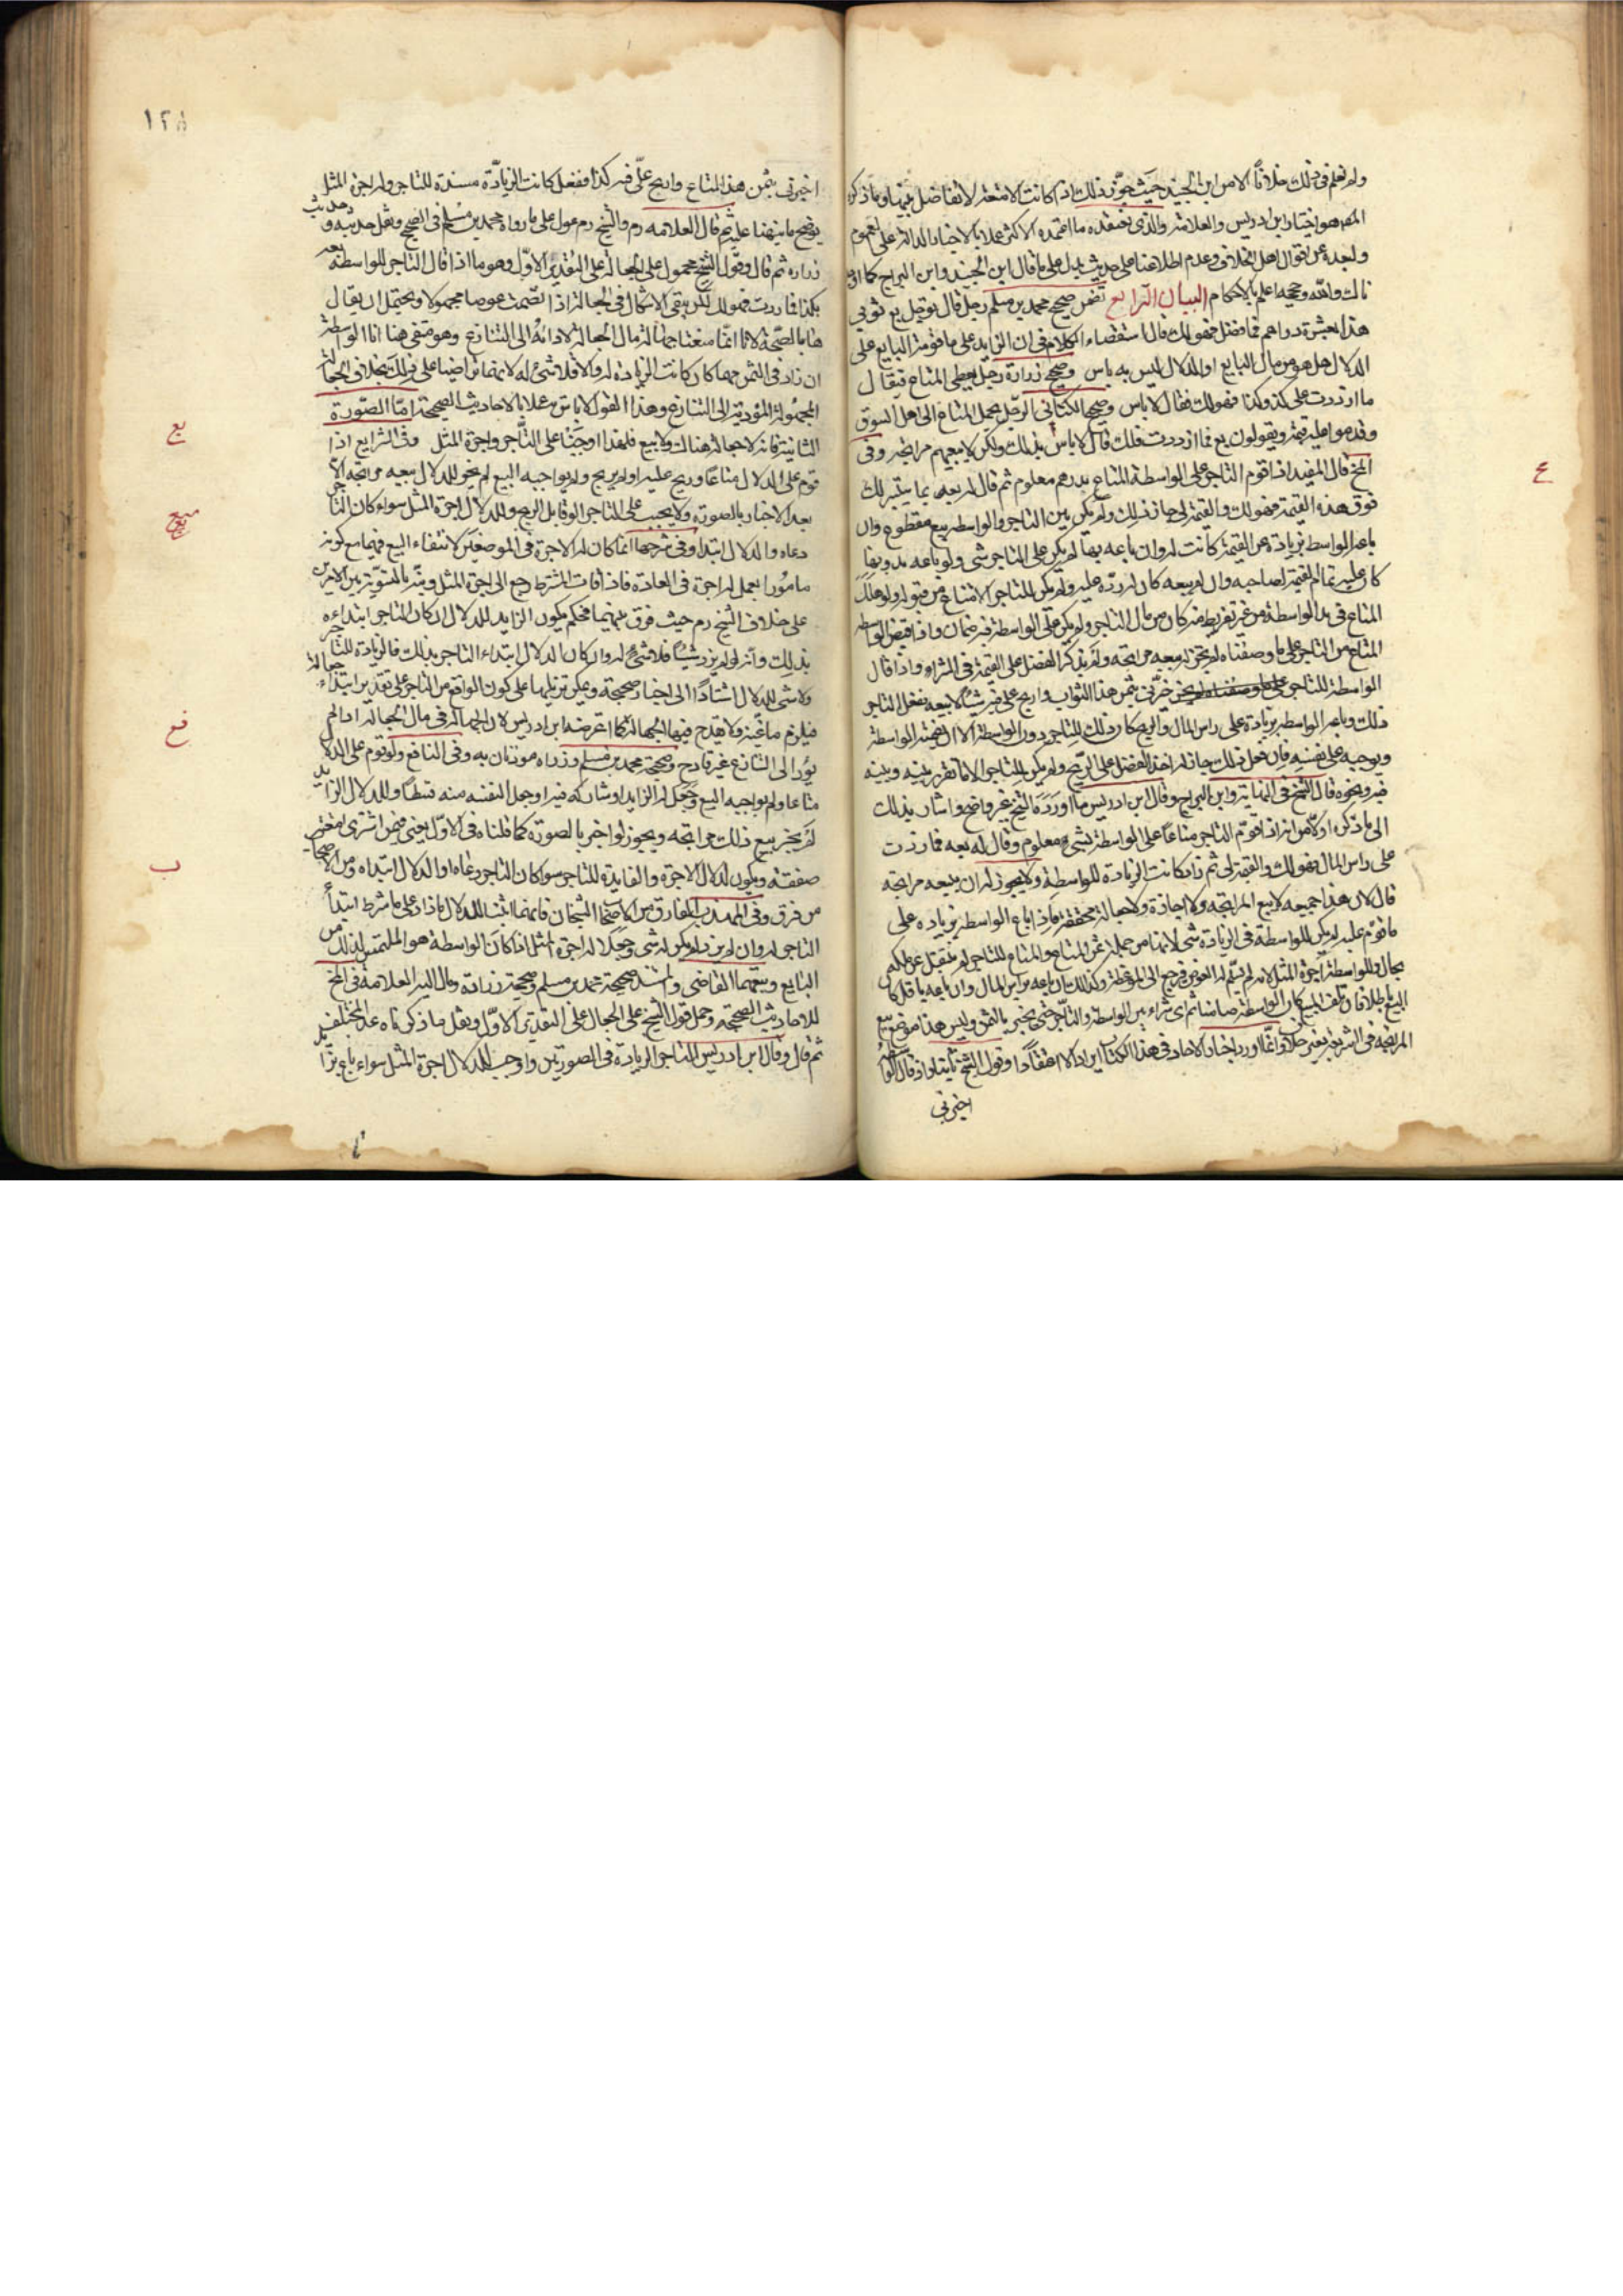 ولم نعلم في ذلك خلافاً الا من ابن الجنيد حيث جوز ذلك اذا كانت الامتعة لا تفاضل بينها وما ذكره
المص هو اختيار ابن ادريس والعلامة والذي نعتقده ما اعتمده الاكثر عملا بالاخبار الدالة على العموم
ولبعده عن اقوال اهل الخلاف وعدم اطلاعنا على حديث يدل على ما قال ابن الجنيد وابن البراج كما
ذلك والله وحججه اعلم بالاحكام البيان الرابع تضمن صحيح محمد بن مسلم رجل قال لرجل بع ثوبي
هذا بعشرة دراهم فما فضل فهو لك قال استقصاء الكلام في ان الزايد على ما قومه البايع على
الدلال هل هو من مال البايع او الدلال ليس به باس وصحيح زرارة رجل يعطي المتاع فيقال
ما ازددت على كذا وكذا فهو لك فقال لا باس وصحيح الكناني الرجل يحمل المتاع الى اهل السوق
وقد قوموا عليه قيمة ويقولون بع فما ازددت فلك قال لا باس بذلك ولكن لا يبيعهم مرابحة وفي
المخ قال المفيد اذا قوم التاجر على الواسطة المتاع بدرهم معلوم ثم قال له بعه فما تيسر لك
فوق هذه القيمة فهو لك والقيمة لي جاز ذلك ولم يكن بين التاجر والواسطة بيع مقطوع وان
باعه الواسطة بزيادة عن القيمة كانت له وان باعه بها لم يكن على التاجر شي ولو باعه بدونها
كان عليه تمام القيمة لصاحبه وان لم يبعه كان له رده عليه ولم يكن للتاجر الامتناع من قبوله ولو هلك
المتاع في يد الواسطة من غير تفريط منه كان من مال التاجر ولم يكن على الواسطة فيه ضمان واذا قبض الواسطة
المتاع من التاجر على ما وصفناه لم يجز ان يبيعه مرابحة ولم يذكر الفضل على القيمة في الشراء واذا قال
الواسطة للتاجر خبرني بثمن هذا الثواب واربح علي فيه شيئا لابيعه ففعل التاجر
ذلك وباعه الواسطة بزيادة على راس المال والربح كان ذلك للتاجر دون الواسطة الا ان يضمنه الواسطة
ويوجبه على نفسه فان فعل ذلك جاز له اخذ الفضل على الربح ولم يكن للتاجر الا ما تقرر بينه وبينه
فيه ونحوه قال الشيخ في النهاية وابن البراج وقال ابن ادريس ما اورده الشيخ غير واضح واشار بذلك
الى ما ذكره اولا من انه اذا قوم التاجر متاعا على الواسطة بشيء معلوم وقال له بعه فما زدت
على راس المال فهو لك والقيمة لي ثم زاد كانت الزيادة للواسطة ولا يجوز له ان يبيعه مرابحة
قال لان هذا جميعه لا بيع المرابحة ولا اجارة ولا جعالة محققة فاذا باع الواسطة بزيادة على
ما قوم عليه لم يكن للواسطة في الزيادة شي لانها من جملة ثمن المتاع والمتاع للتاجر لم ينتقل عن ملكه
بحال وللواسطة اجرة المثل لانه لم يسلم له العوض فرجع الى المعوض وكذلك ان باعه براس المال وان باعه باقل كان
البيع باطلا فان تلف المبيع كان الواسطة ضامنا ثم اي شراء بين الواسطة والتاجر حتى يخبر بالثمن وليس هذا موضع بيع
المرابحة في الشريعة بغير خلاف وانما اورد اخبار الاحاد في هذا الكتاب ايرادا لا اعتقادا وقول الشيخ ثانيا واذا قال الواسطة
اخبرني
١٢٨
اخبرني بثمن هذا المتاع واربح علي فيه كذا ففعل كانت الزيادة مستندة للتاجر وله اجرة المثل
يوضح ما نبهنا عليه ثم قال العلامه ره والشيخ ره عول على ما رواه محمد بن مسلم في الصحيح ونقل حديثه وحديث
زراره ثم قال وقول الشيخ محمول على الجعالة على التقدير الاول وهو ما اذا قال التاجر للواسطة بعه
بكذا فما زدت فهو لك لكن يبقى الاشكال في الجعالة اذا تضمنت عوضا مجهولا ويحتمل ان يقال
هنا بالصحة لانا انما منعنا جهالة مال الجعالة لادائه الى التنازع وهو منتفي هنا اما الواسطة
ان زاد في الثمن مهما كان كانت الزيادة له والا فلا شئ له لانهما تراضيا على ذلك بخلاف الجعالة
المجهولة المؤدية الى التنازع وهذا القول لا باس به عملا بالاحاديث الصحيحة اما الصورة
الثانية فانه لا جعالة هناك ولا بيع فلهذا اوجبنا على التاجر اجرة المثل وفي الشرايع اذا
قوم على الدلال متاعا وربح عليه او لم يربح ولم يواجبه البيع لم يجز للدلال بيعه مرابحة الا
بعد الاخبار بالصورة ولا يجب على التاجر الوفا بل الربح له وللدلال اجرة المثل سواء كان التاجر
دعاه او الدلال ابتداه وفي شرحها انما كان له الاجرة في الموضعين لانتفاء البيع فيهما مع كونه
مامورا بعمل له اجرة في العادة فاذا فات الشرط رجع الى اجرة المثل ونبه بالتسوية بين الامرين
على خلاف الشيخ ره حيث فرق بينهما فحكم بكون الزايد للدلال ان كان التاجر ابتداءه
بذلك وانه لو لم يزد شيئا فلا شيء له وان كان الدلال ابتداء التاجر بذلك فالزيادة للتاجر
ولا شي للدلال استنادا الى اخبار صحيحة ويمكن تنزيلها على كون الواقع من التاجر على تقدير ابتداءه جعالة
فيلزم ما عينه ولا يقدح فيها الجهالة كما اعترضه ابن ادريس لان الجهالة في مال الجعالة اذا لم
يؤد الى التنازع غير قادح وصحيحة محمد بن مسلم وزراره موذنان به وفي النافع ولو قوم على الدلال
متاعا ولم يواجبه البيع وجعل له الزايد او شاركه فيه او جعل لنفسه منه قسطا وللدلال الزايد
لم يجز بيع ذلك مرابحة ويجوز لو اخبر بالصورة كما قلناه في الاول يعني فيمن اشترى امتعة
صفقة ويكون للدلال الاجرة والفايدة للتاجر سوا كان التاجر دعاه او الدلال ابتداه ومن الاصحاب
من فرق وفي المهذب الفارق من الاصحاب الشيخان فانهما اثبتا للدلال ما زاد على ما شرط ابتداء
التاجر له وان لم يزد لم يكن له شي وجعلا له اجرة المثل اذا كان الواسطة هو الملتمس لذلك من
البايع وتبعهما القاضي والمستند صحيحة محمد بن مسلم وصحيحة زرارة ومال اليه العلامة في المخ
للاحاديث الصحيحة وحمل قول الشيخ على الجعال على التقدير الاول ونقل ما ذكرناه عنه المختلف
ثم قال وقال ابن ادريس للتاجر الزيادة في الصورتين واوجب للدلال اجرة المثل سواء باع بزايد
ع
يع
فع
ب